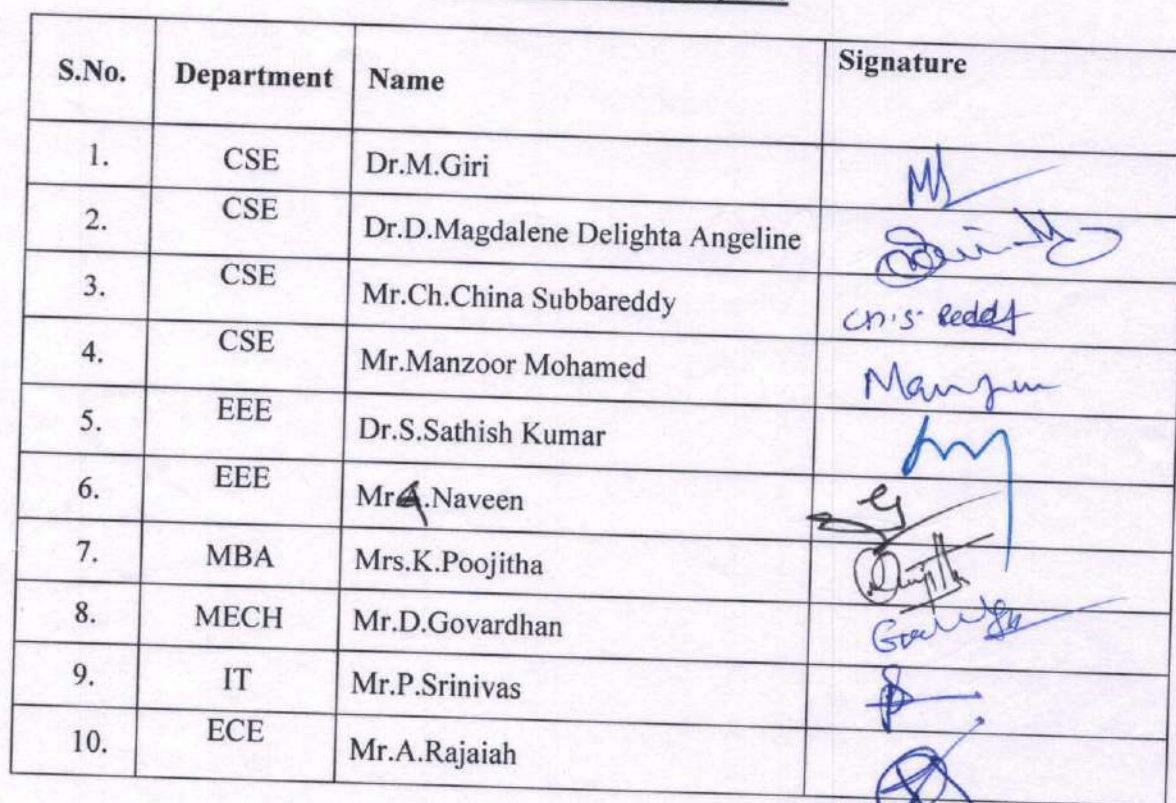 S.No. Department Name Signature
1. CSE Dr.M.Giri
2. CSE Dr.D.Magdalene Delighta Angeline
3. CSE Mr.Ch.China Subbareddy Ch.S. Reddy
4. CSE Mr.Manzoor Mohamed
5. EEE Dr.S.Sathish Kumar
6. EEE Mr .Naveen
7. MBA Mrs.K.Poojitha
8. MECH Mr.D.Govardhan
9. IT Mr.P.Srinivas
10. ECE Mr.A.Rajaiah